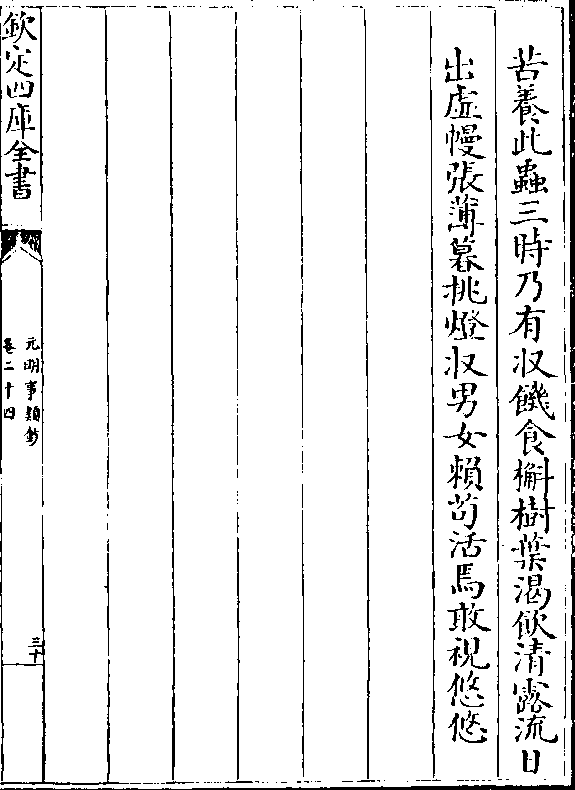 苦養此蟲三時乃有収饑食槲樹葉渴飲清露流日
出虛幔張薄暮挑燈収男女賴苟活焉敢視悠悠
欽定四庫全書
元明事類鈔
卷二十四
三十